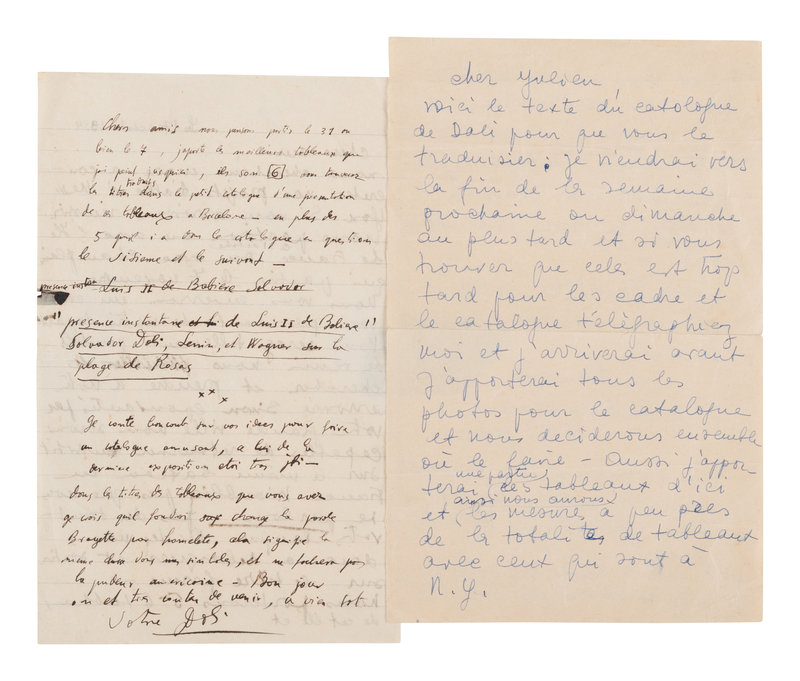 Chers amis nous pensons partir le 31 ou
bien le 7, japorte les meilleurs tobleaux que
jai peint jusquici, ils son [6] vous trouverez
la titres dans le petit catalogue d'une presentation
de ces tobleaux a Barcelone – en plus des
5 quil i a dans le catalogue en question
le sisieme et le suivant –
presence instan Luis II de Babiere Solvador
"presence instantane et lui de Luis II de Baliere"
Solvador Dali, Lenin, et Wagner sur la
plage de Rosas
x x x
Je conte boucout sur vos idees pour faire
un catalogue amusant, a lui de la
derniere exposition etoi tres joli –
dans la titres des tobleaux que vous avez
ge crois quil foudroi change la parole
Braguette par homelete, cela signifie la
meme chose vous et ne fachera pas
la pudeur americaine – Bon jour
et tres contens de venir, a vien tot
Votre Dali
cher Julien
voici le texte du catologue
de Dali pour que vous le
traduisier; je viendrai vers
la fin de la semaine
prochaine ou dimanche
au plus tard et si vous
trouver que celes est trop
tard pour les cadre et
le catalogue télégraphiez
moi et j'arriverai avant
j'apporterai tous les
photos pour le catalogue
et nous deciderons ensemble
où le faire – Aussi j'appor
terai une partie des tableaux d'ici
et ainsi nous aurons les mesures à peu près
de la totalités de tableaux
avec ceux qui sont à
N.Y.